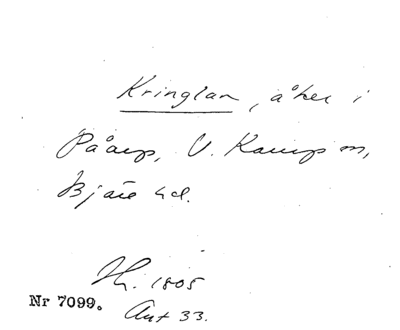 Kringlan, åker i
Påarp, V. Karup sn,
Bjäre hd.
Th. 1805
Nr 7099.
Ant 33.